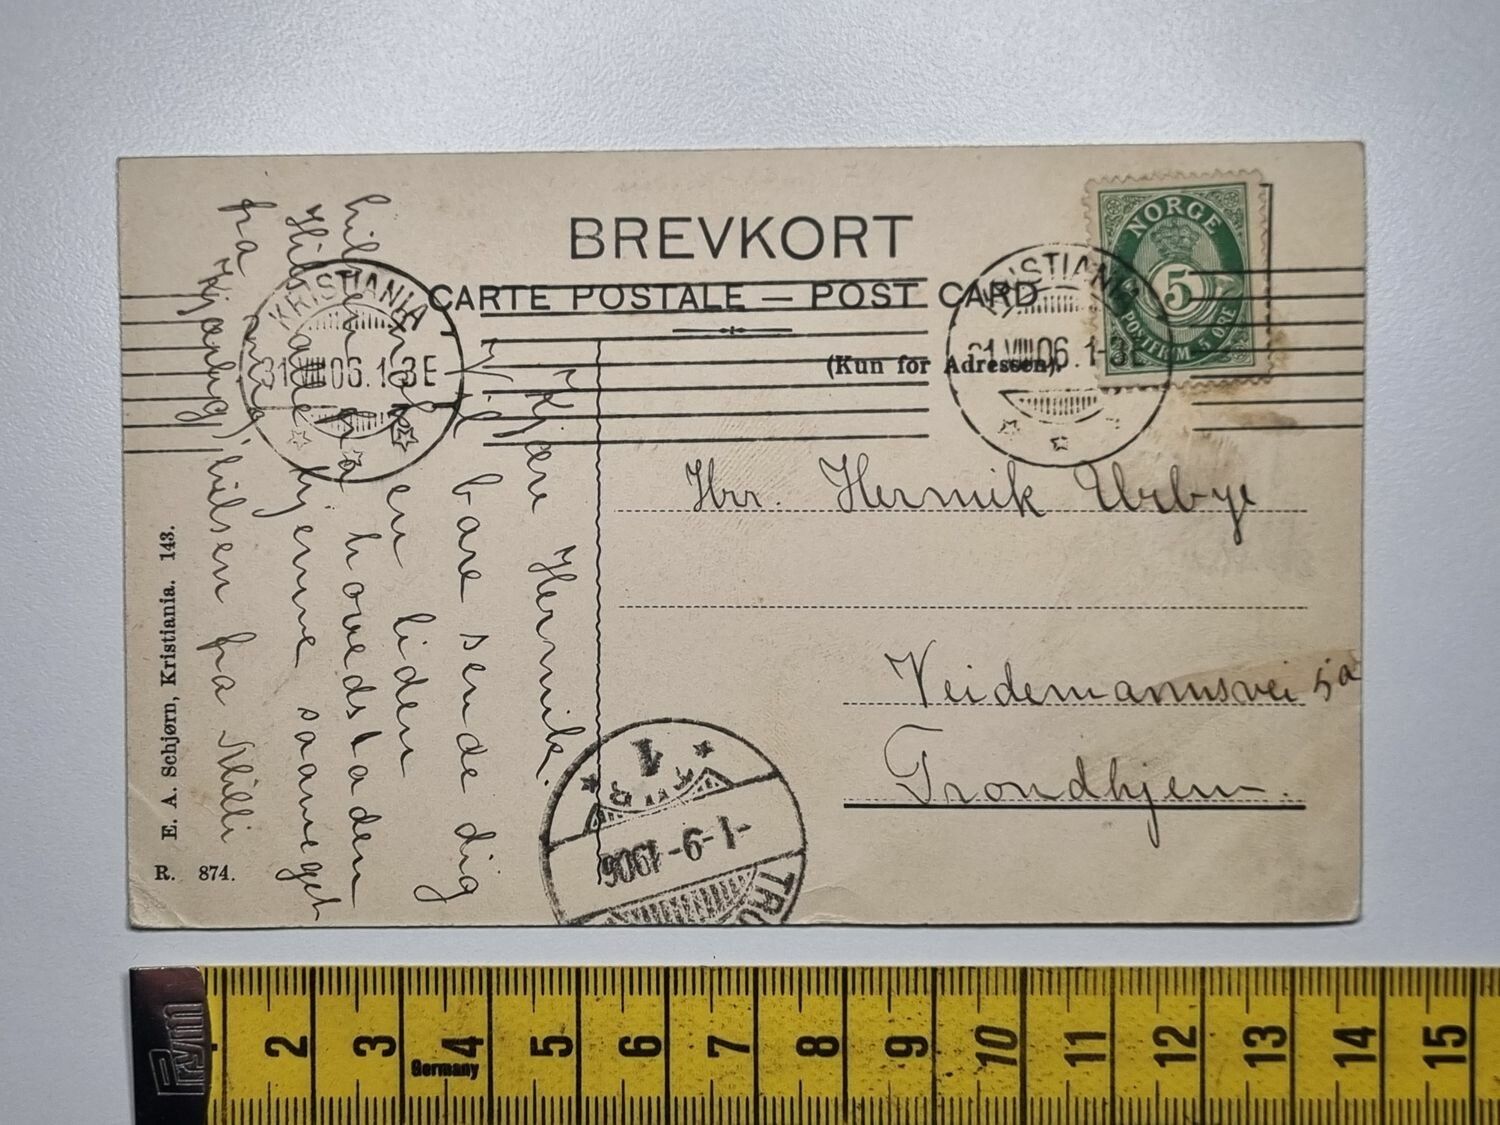 BREVKORT
CARTE POSTALE — POST CARD
(Kun for Adressen).
NORGE
5
POSTFRIM 5 ØRE
KRISTIANIA
31 VIII 06. 1-3E
KRISTIANIA
31 VIII 06. 1-3E
Hrr. Hermik Urbye
Veidemannsvei 5a
Trondhjem.
Kjære Hermik.
Vil bare sende dig
en liden
hilsen fra hovedstaden
Hils alle hjemme saameget
fra
Kjærlig hilsen fra Milli
1
-1-9-1906
TRO
E. A. Schjørn, Kristiania. 143.
R. 874.
Prym
Germany
2 3 4 5 6 7 8 9 10 11 12 13 14 15